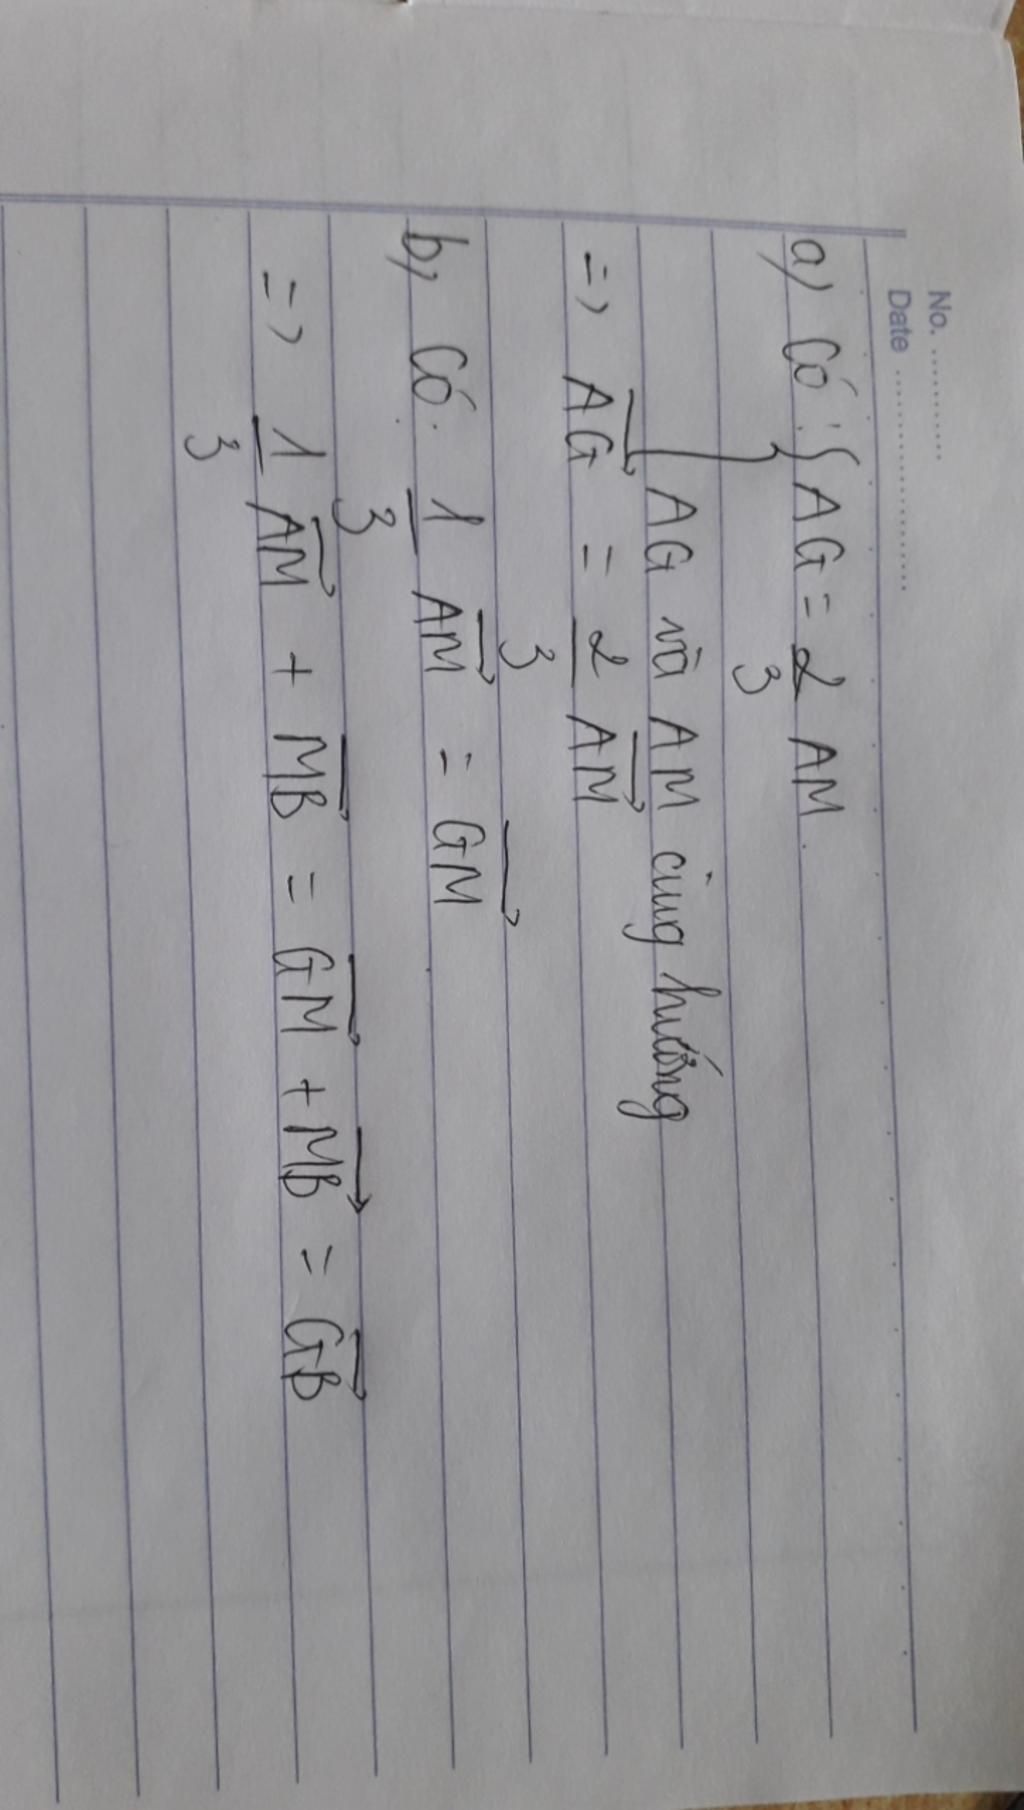 No. ............
Date ........................
a) Có : { AG = 2/3 AM
AG và AM cùng hướng
=> \overrightarrow{AG} = 2/3 \overrightarrow{AM}
b) Có. 1/3 \overrightarrow{AM} = \overrightarrow{GM}
=> 1/3 \overrightarrow{AM} + \overrightarrow{MB} = \overrightarrow{GM} + \overrightarrow{MB} = \overrightarrow{GB}